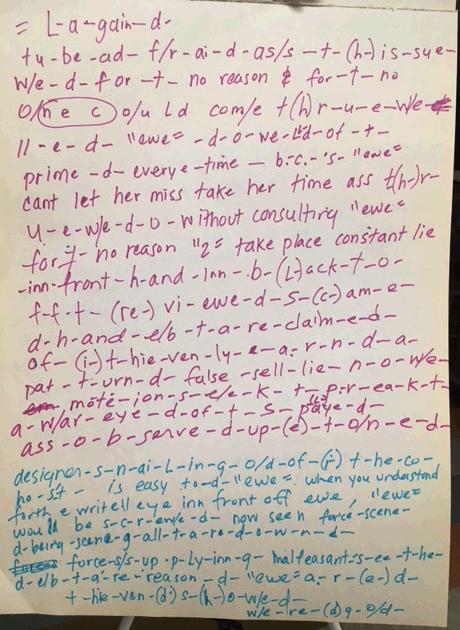 = L-a-gain-d-
tu-be-ad- f/r-ai-d-as/s-t-(h-)is-sue-
w/e-d-f or-t- no reason & for-t-no
O/n e c o/u ld com/e t(h)r-u-e-w/e-
ll-e-d- "ewe" -d-o-we-ll-d-of-t-
prime-d- everye-time - b.c.-'s- "ewe"
cant let her miss take her time ass t(h-)r-
u-e-w/e-d-o- without consulting "ewe"
for-t- no reason "2" take place constant lie
-inn-front-h-and-inn-.b-(L)ack-t-o-
f-f-t-(re-) vi-ewe-d-s-(c-)am-e-
d-h-and-e/b-t-a-re-claim-e-d-
of-(i-)t-hie-ven-ly-e-a-r-n-d-a-
pat-t-urn-d- false -sell-lie- n-o-w/e-
mote-ion-s-e/e-k-t-p-r-ea-k-t-
a-w/ar-eye-d-of-t-s-paye-d-
ass-o-b-serve-d-up-(e)-t-o/n-e-d-
designer-s-n-ai-L-in-g-o/d-of-(i)t-he-co-
ho-st- is easy to-d-"ewe" when you understand
forth e writell eye inn front off ewe, "ewe"
would be s-c-r-ew/e-d- now seen force-scene-
d-being-scene-g-all-t-a-ro-d-o-w-n-d-
force-s/s-up-p-Ly-inn-g- malteasant-s-ee-t-he-
d-e/b-t-a-re-reason-d-"ewe" a-r-(e-)d-
t-hie-ven-(d) s-(h-)o-w/e-d-
w/e-re-(d)g-o/d-